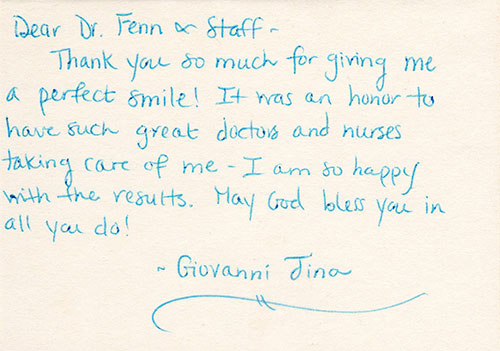 Dear Dr. Fenn & Staff -
Thank you so much for giving me
a perfect smile! It was an honor to
have such great doctors and nurses
taking care of me - I am so happy
with the results. May God bless you in
all you do!
~ Giovanni Tina